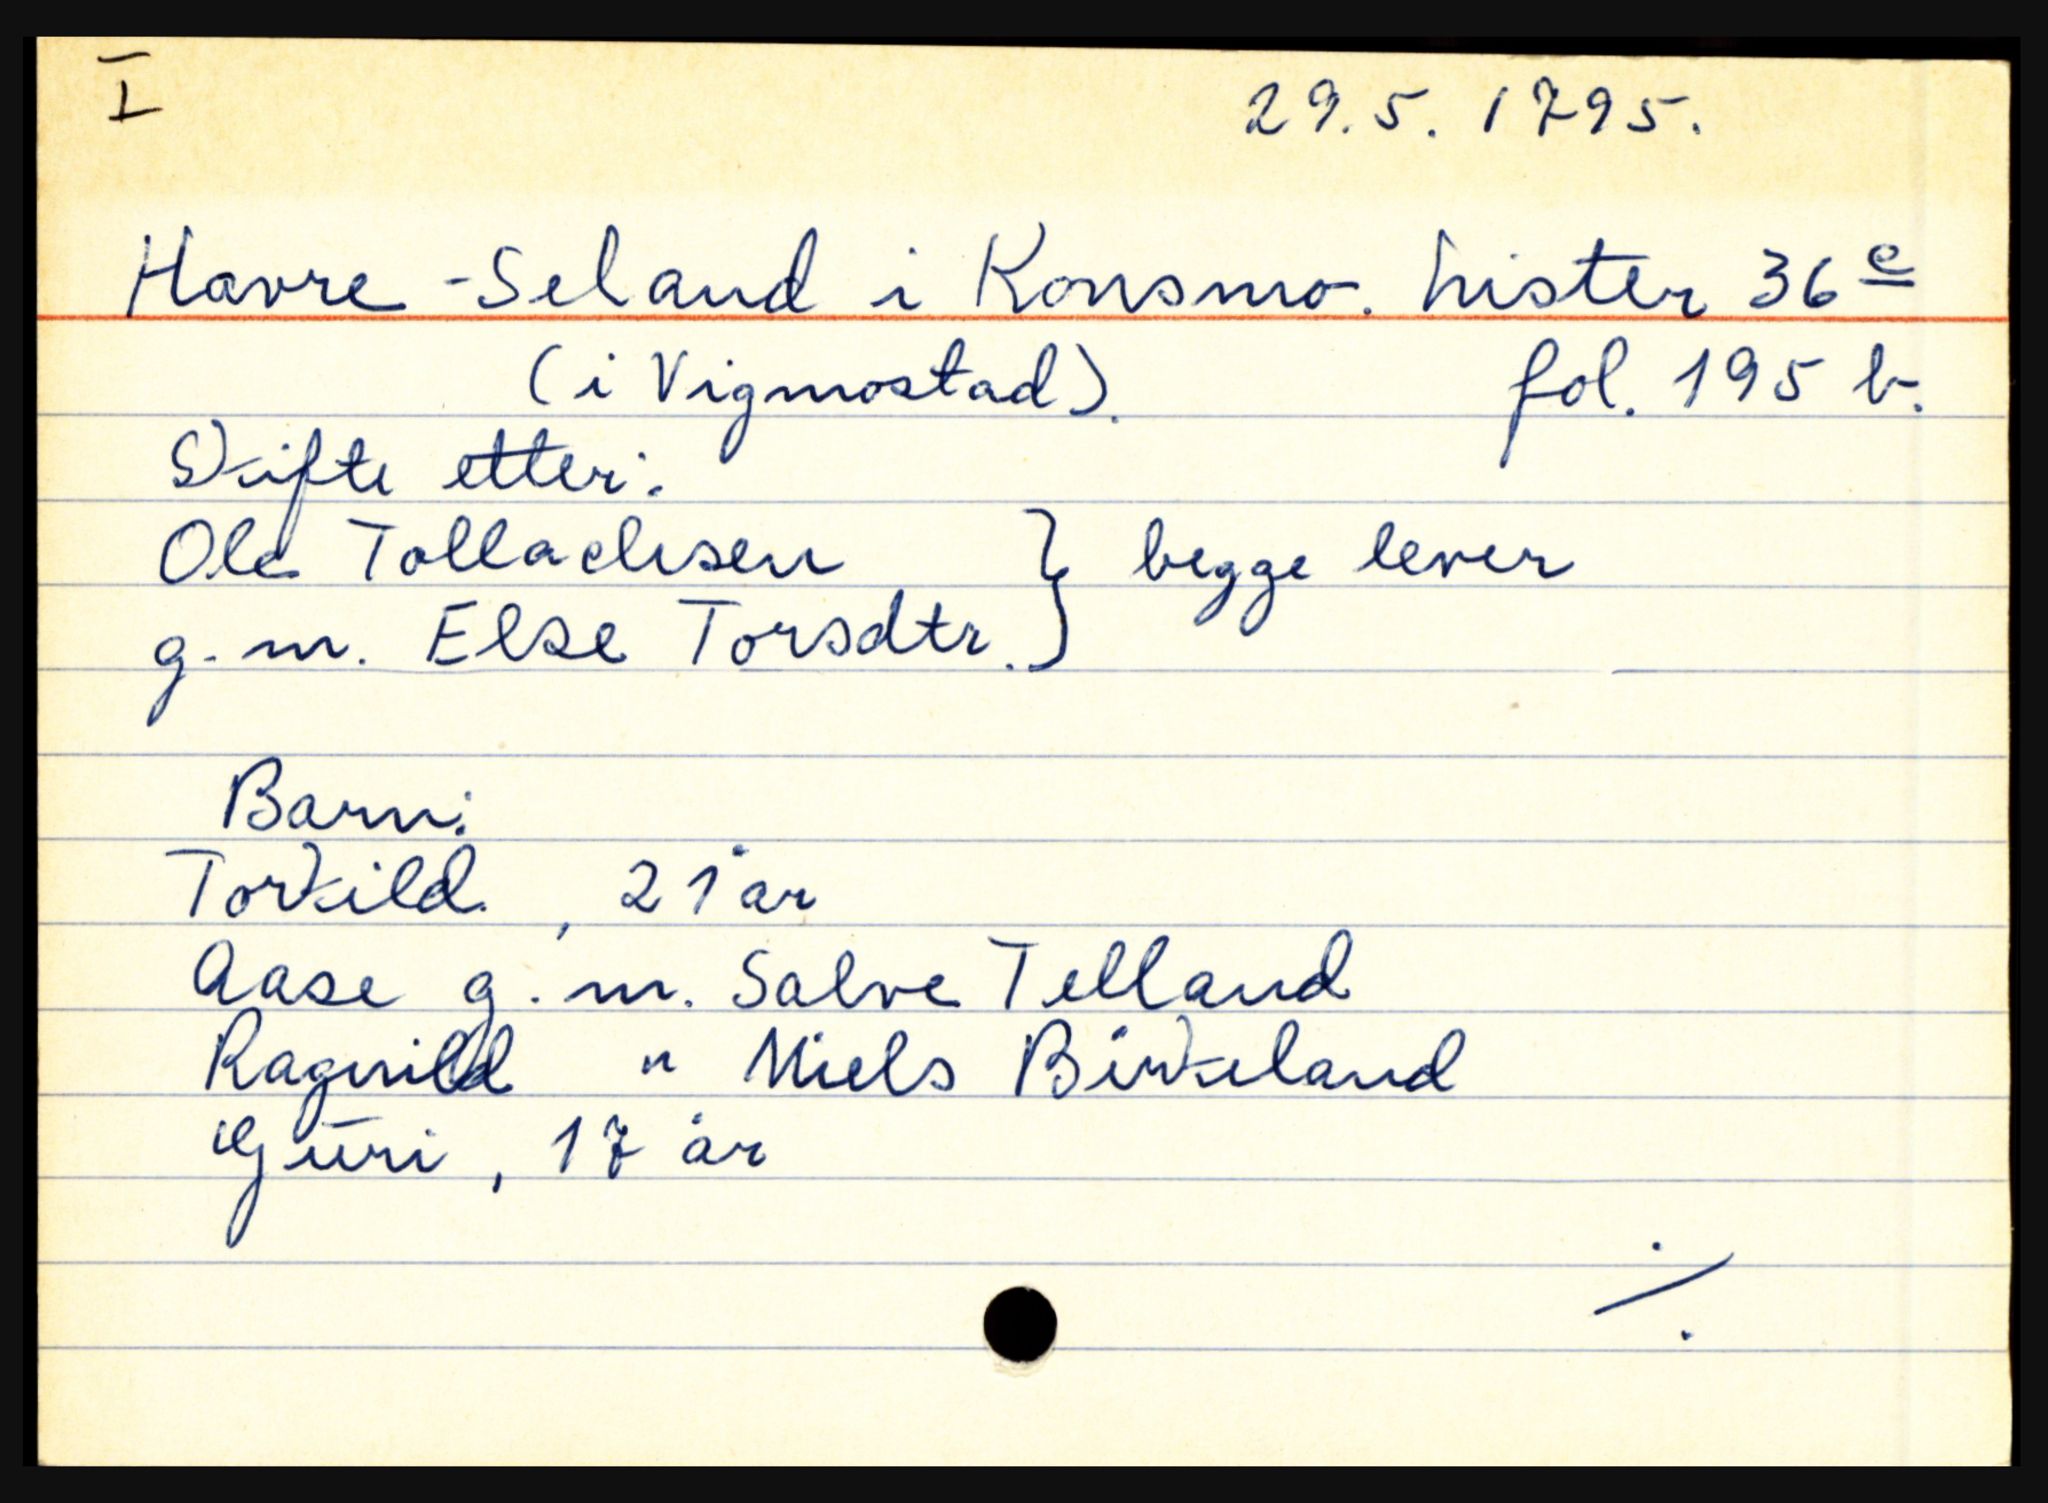 I
29.5.1795.
Havre-Seland i Konsmo. Lister 36 e
(i Vigmostad). fol. 195 b.
Skifte etter:
Ole Tollachsen } begge lever
g.m. Else Torsdtr.
Barn:
Torkild, 21 år
Aase g.m. Salve Telland
Ragnild " Niels Birkeland
Guri, 17 år
./.